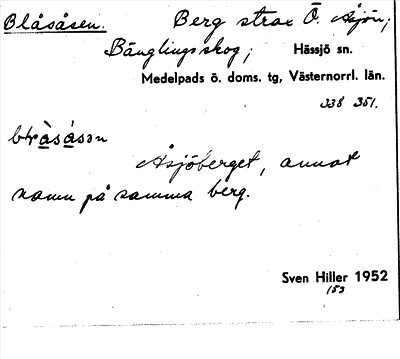 Blåsåsen. Berg strax Ö. Åsjön,
Bänglingsskog; Hässjö sn.
Medelpads ö. doms. tg, Västernorrl. län.
338 351.
Åsjöberget, annat
namn på samma berg.
Sven Hiller 1952
153